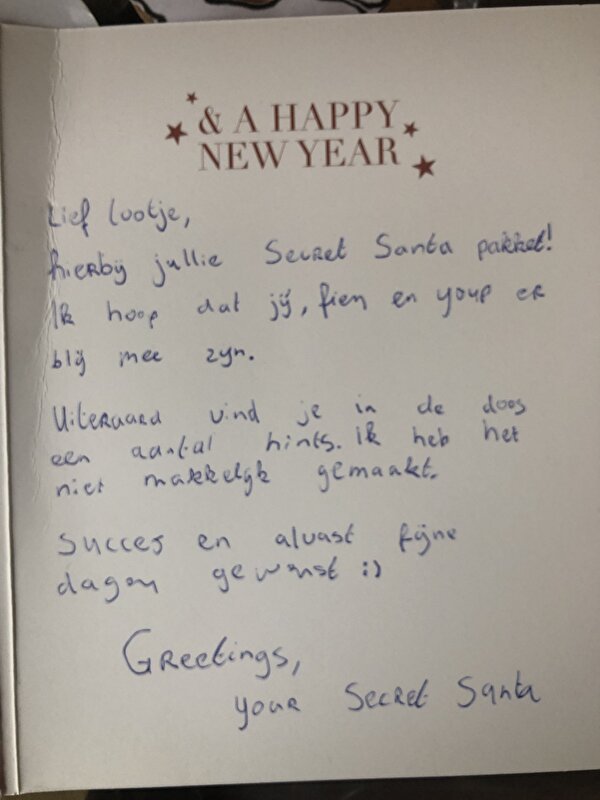 & A HAPPY
NEW YEAR
Lief lootje,
hierbij jullie Secret Santa pakket!
Ik hoop dat jij, fien en youp er
blij mee zijn.
Uiteraard vind je in de doos
een aantal hints. Ik heb het
niet makkelijk gemaakt.
Succes en alvast fijne
dagen gewenst :)
Greetings,
your Secret Santa